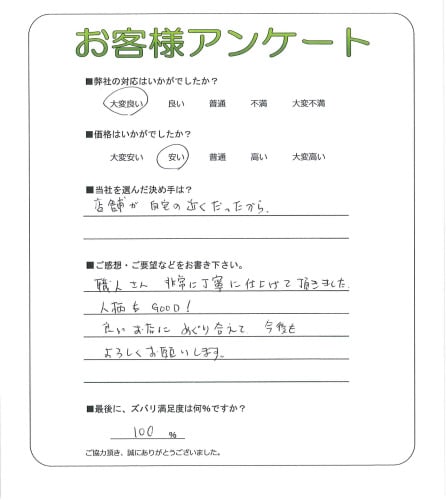 お客様アンケート
■弊社の対応はいかがでしたか？
大変良い 良い 普通 不満 大変不満
■価格はいかがでしたか？
大変安い 安い 普通 高い 大変高い
■当社を選んだ決め手は？
店舗が自宅の近くだったから。
■ご感想・ご要望などをお書き下さい。
職人さん 非常に丁寧に仕上げて頂きました。
人柄も GOOD！
良いお店に めぐり合えて 今後も
よろしくお願いします。
■最後に、ズバリ満足度は何%ですか？
100 %
ご協力頂き、誠にありがとうございました。